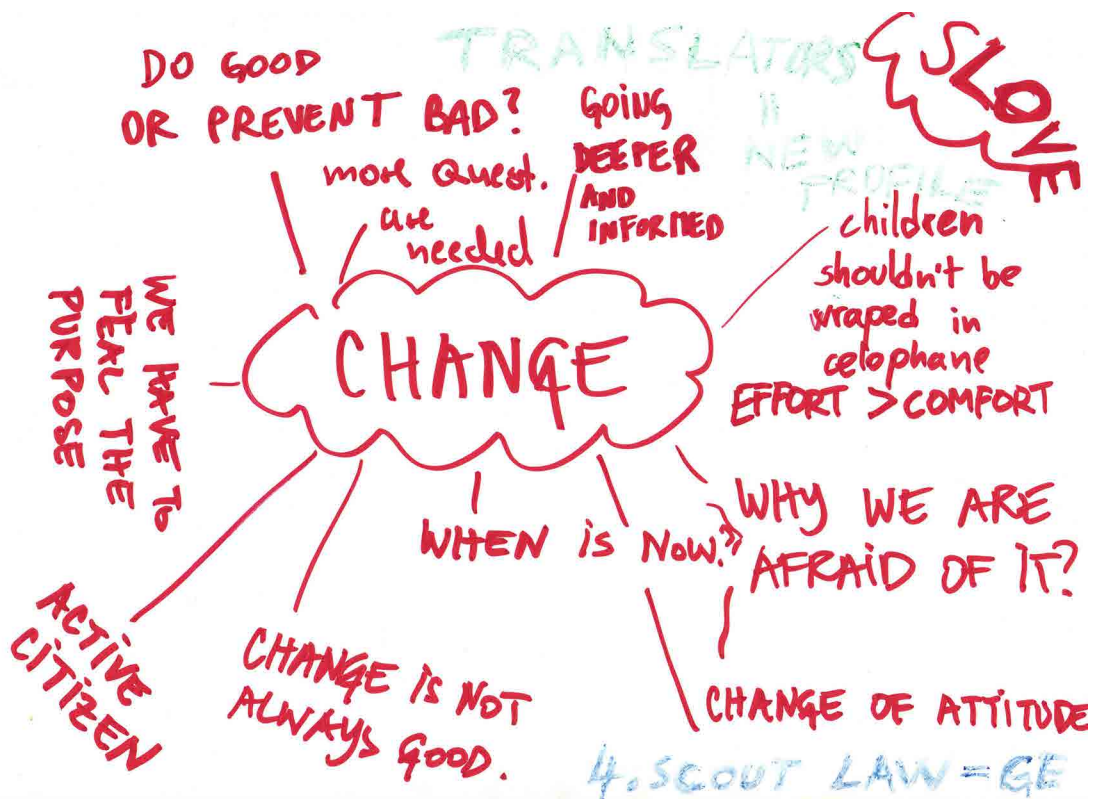 TRANSLATORS
=
NEW
PROFILE
SLOVE
DO GOOD
OR PREVENT BAD?
more Quest.
are
needed
GOING
DEEPER
AND
INFORMED
children
shouldn't be
wraped in
celophane
EFFORT > COMFORT
CHANGE
WE HAVE TO
FEAL THE
PURPOSE
WHEN iS NOW?
WHY WE ARE
AFRAiD OF iT?
ACTIVE
CiTiZEN
CHANGE iS NOT
ALWAYS GOOD.
CHANGE OF ATTiTUDE
4. SCOUT LAW = GE